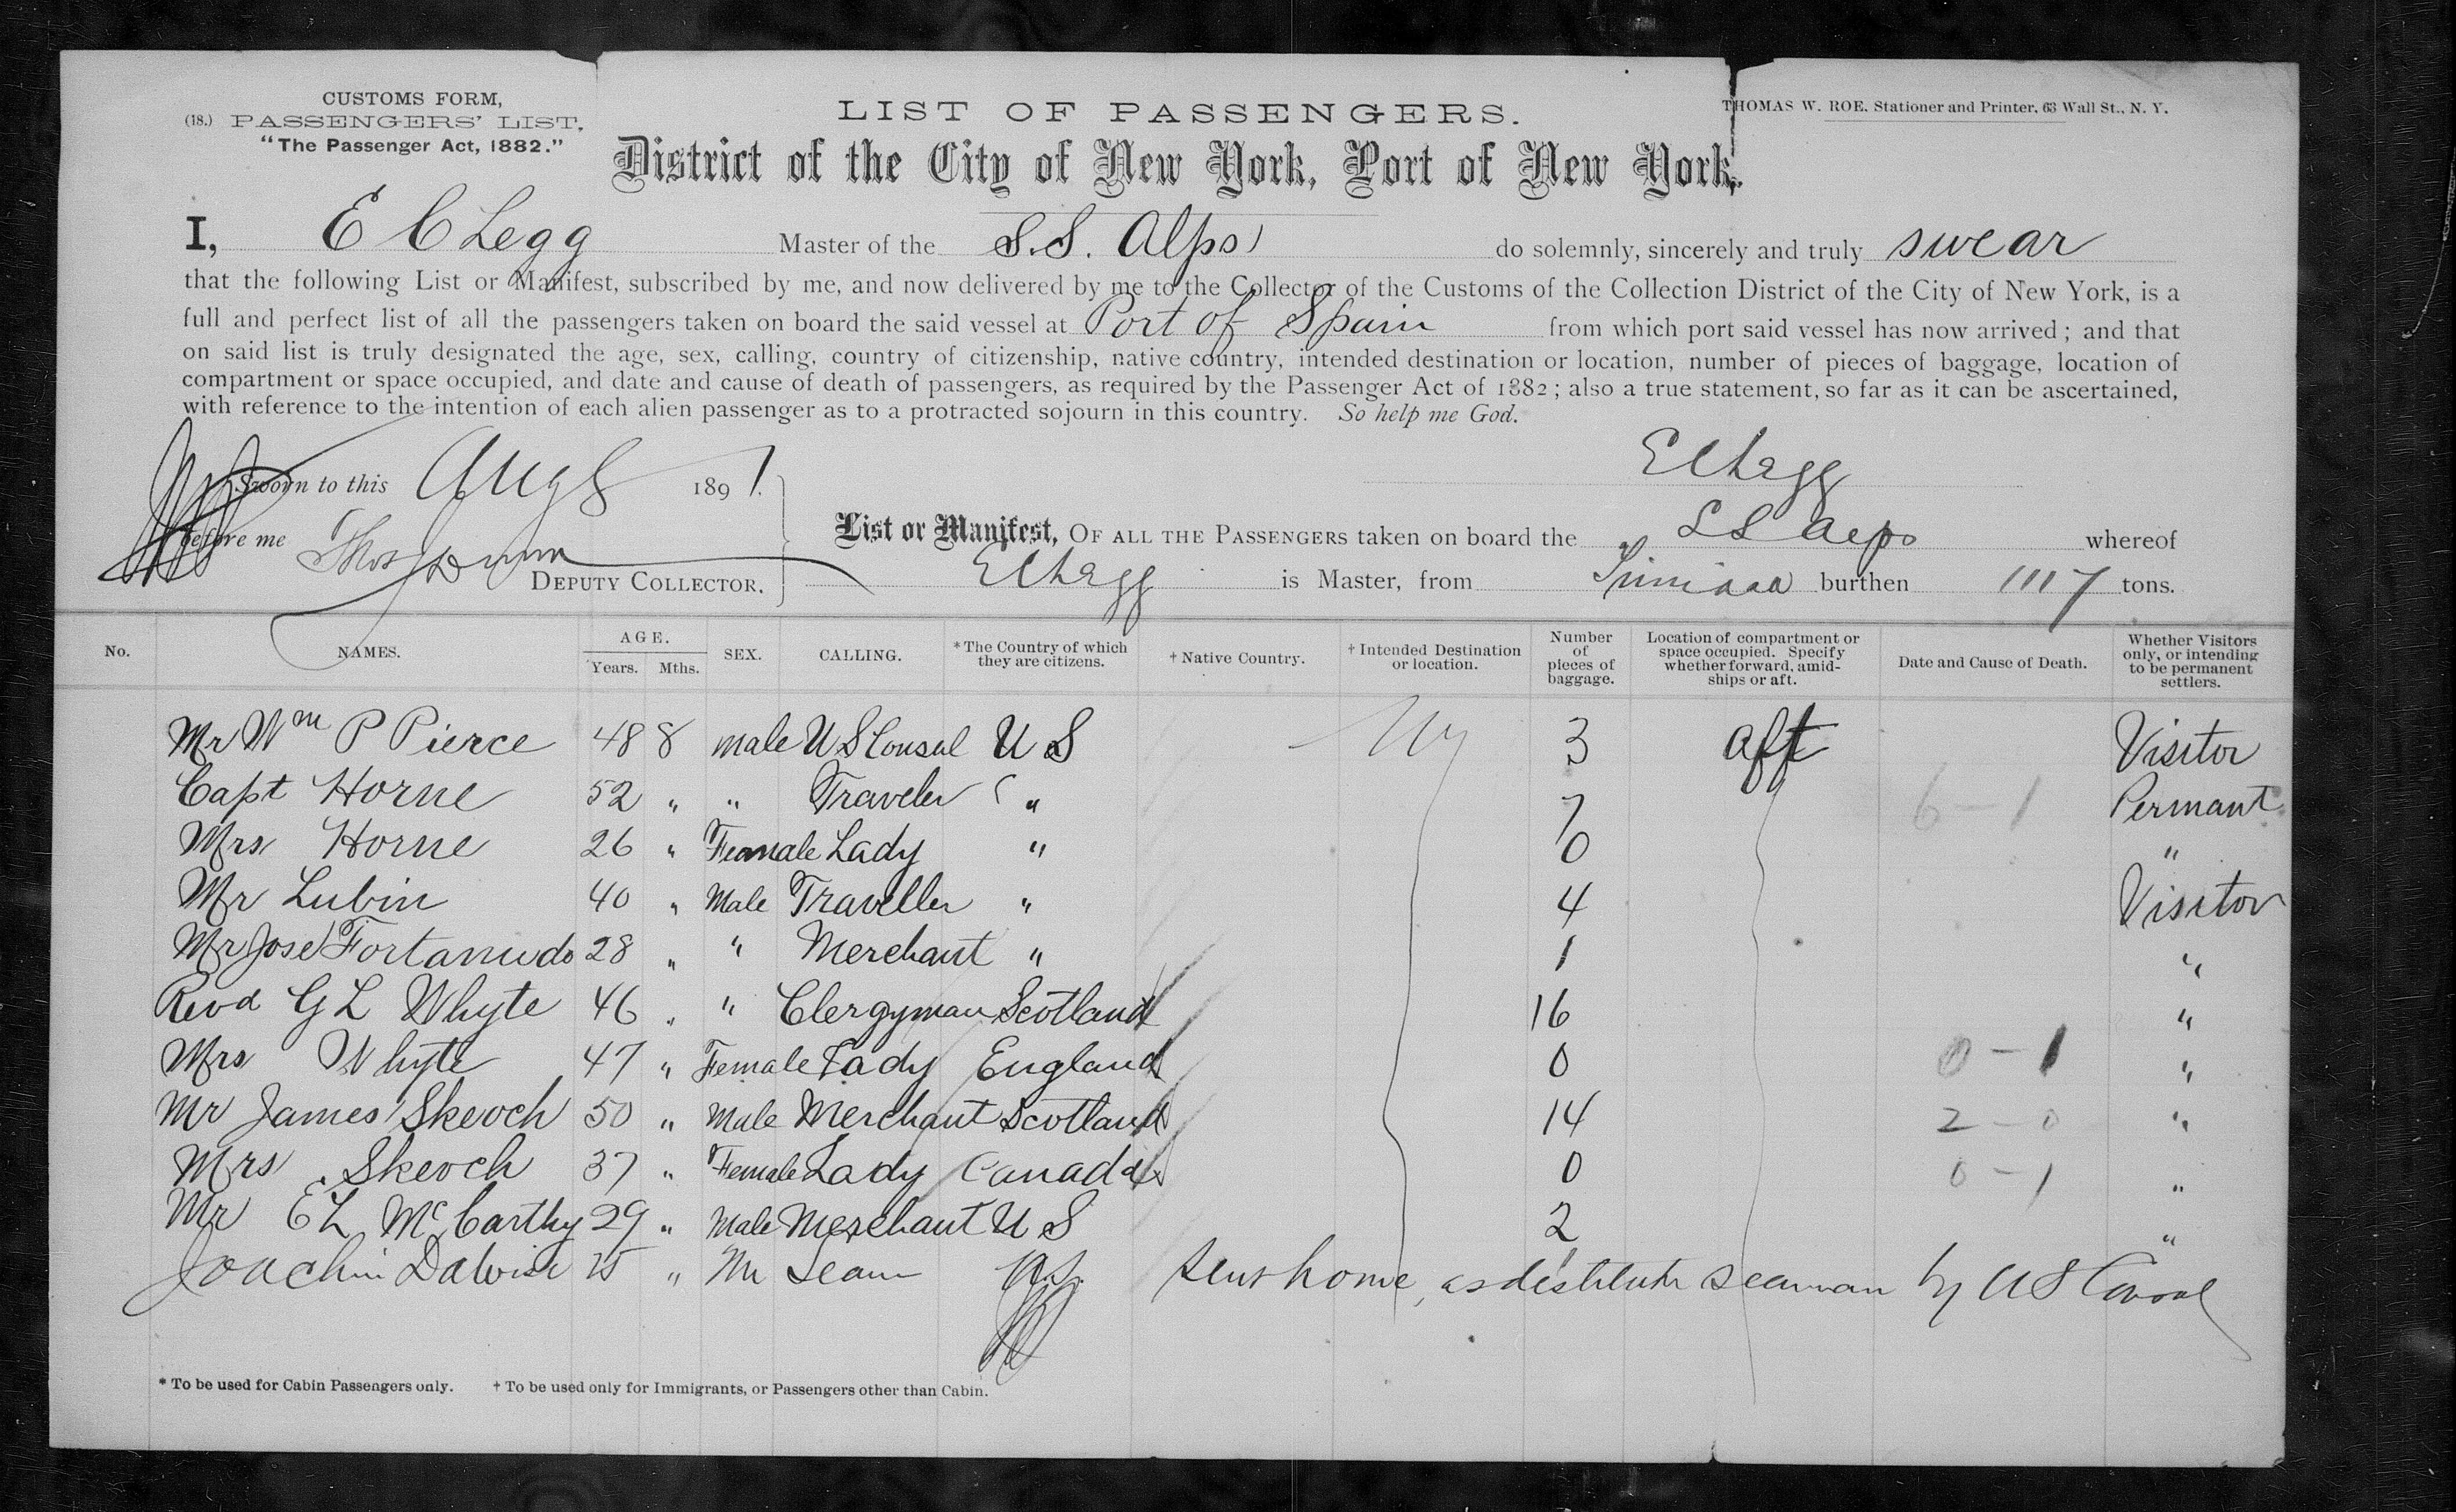 CUSTOMS FORM,
(18.) PASSENGERS' LIST,
"The Passenger Act, 1882."
LIST OF PASSENGERS.
THOMAS W. ROE. Stationer and Printer. 63 Wall St., N. Y.
District of the City of New York, Port of New York.
I, E C Legg Master of the S.S. Alps do solemnly, sincerely and truly swear
that the following List or Manifest, subscribed by me, and now delivered by me to the Collector of the Customs of the Collection District of the City of New York, is a
full and perfect list of all the passengers taken on board the said vessel at Port of Spain from which port said vessel has now arrived; and that
on said list is truly designated the age, sex, calling, country of citizenship, native country, intended destination or location, number of pieces of baggage, location of
compartment or space occupied, and date and cause of death of passengers, as required by the Passenger Act of 1882; also a true statement, so far as it can be ascertained,
with reference to the intention of each alien passenger as to a protracted sojourn in this country. So help me God.
E C Legg
Sworn to this Aug 8 1891.
before me Thos
DEPUTY COLLECTOR.
List or Manifest, OF ALL THE PASSENGERS taken on board the SS Alps whereof
E C Legg is Master, from Trinidad burthen 1117 tons.
No. NAMES. AGE. Years. Mths. SEX. CALLING. *The Country of which they are citizens. † Native Country. † Intended Destination or location. Number of pieces of baggage. Location of compartment or space occupied. Specify whether forward, amid-ships or aft. Date and Cause of Death. Whether Visitors only, or intending to be permanent settlers.
Mr Wm P Pierce 48 8 male U S Consul U S NY 3 aft Visitor
Capt Horne 52 " " Traveler " 7 6-1 Permant
Mrs Horne 26 " Female Lady " 0 "
Mr Lubin 40 " Male Traveller " 4 Visitor
Mr Jose 28 " " Merchant " 1 "
Revd G L Whyte 46 " " Clergyman Scotland 16 "
Mrs Whyte 47 " Female Lady England 0 0-1 "
Mr James Skeoch 50 " Male Merchant Scotland 14 2-0 "
Mrs Skeoch 37 " Female Lady Canada 0 0-1 "
Mr E L McCarthy 29 " Male Merchant U S 2 "
Joachim 25 " M Seam U.S. 1 Sent home, as destitute seaman by U S Consul
* To be used for Cabin Passengers only. † To be used only for Immigrants, or Passengers other than Cabin.